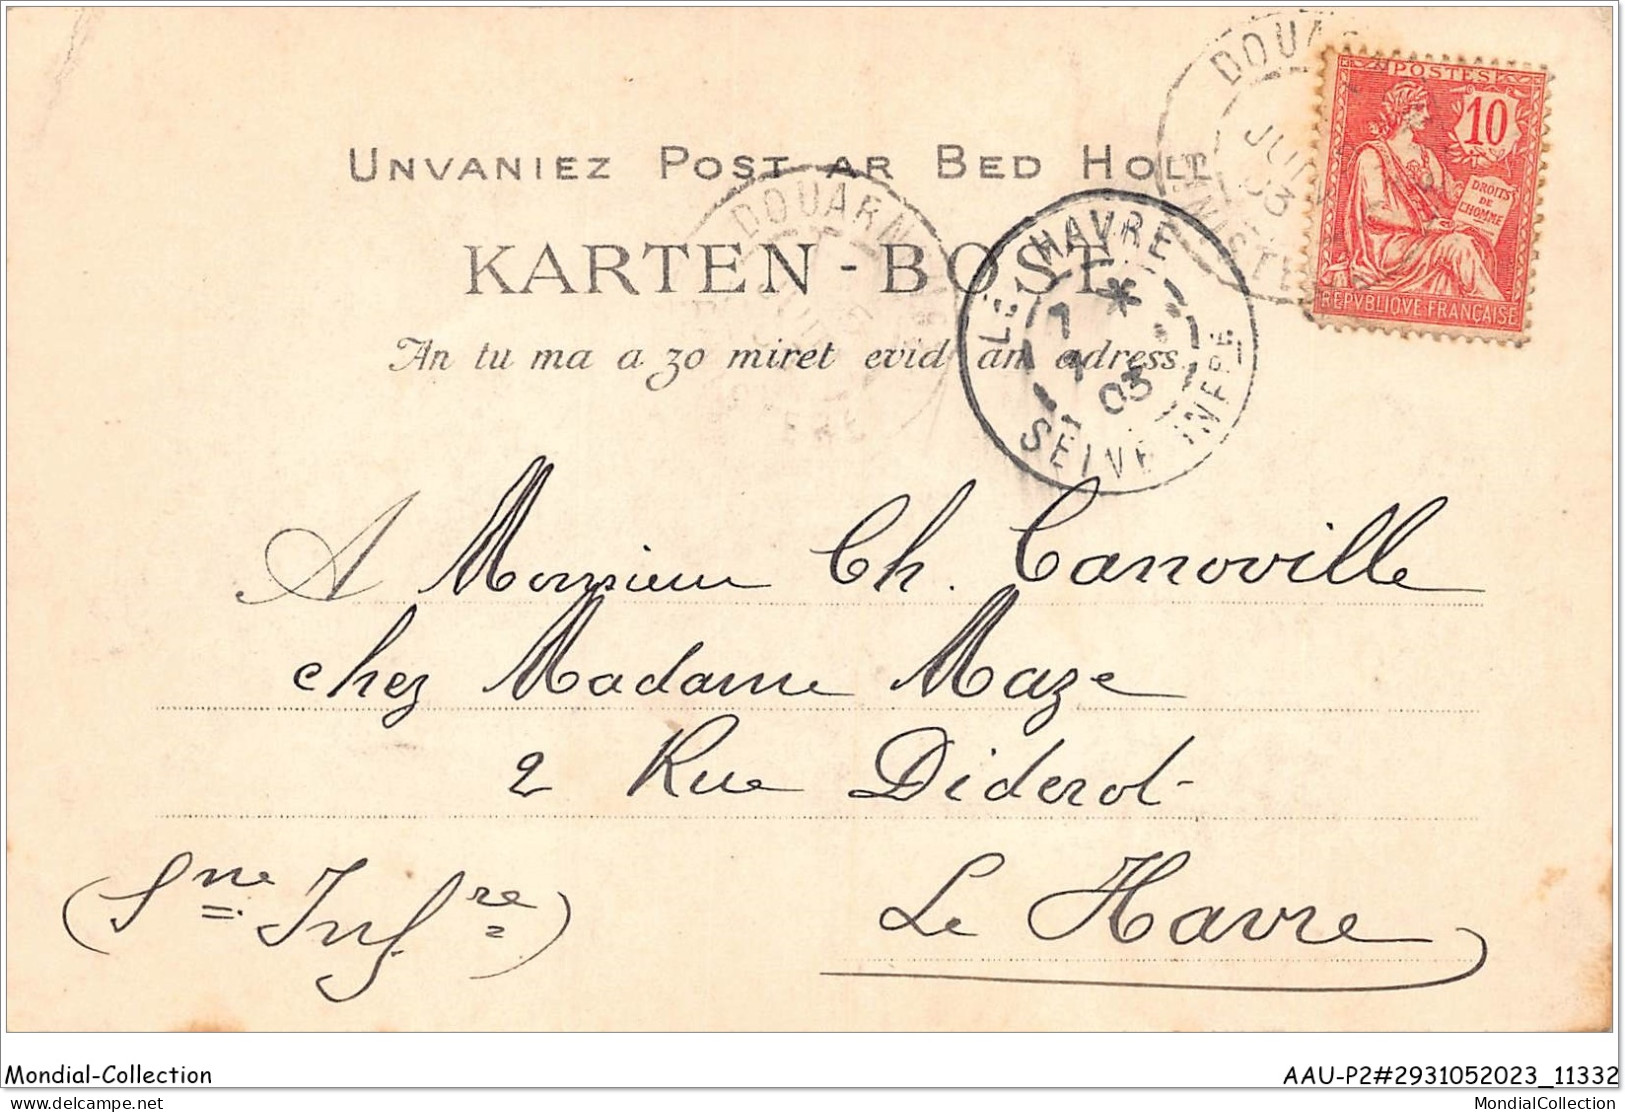 UNVANIEZ POST AR BED HOLL
KARTEN-BOST
An tu ma a zo miret evid an adress.
POSTES
10
DROITS
DE
L'HOMME
REPVBLIQVE FRANÇAISE
JUIN
03
FINISTERE
DOUARN
LE HAVRE
7 *
7
03
SEINE INFRE
A Monsieur Ch. Canoville
chez Madame Maze
2 Rue Diderot
(Sne Infre)
Le Havre
Mondial-Collection
AAU-P2#2931052023_11332
delcampe.net
MondialCollection